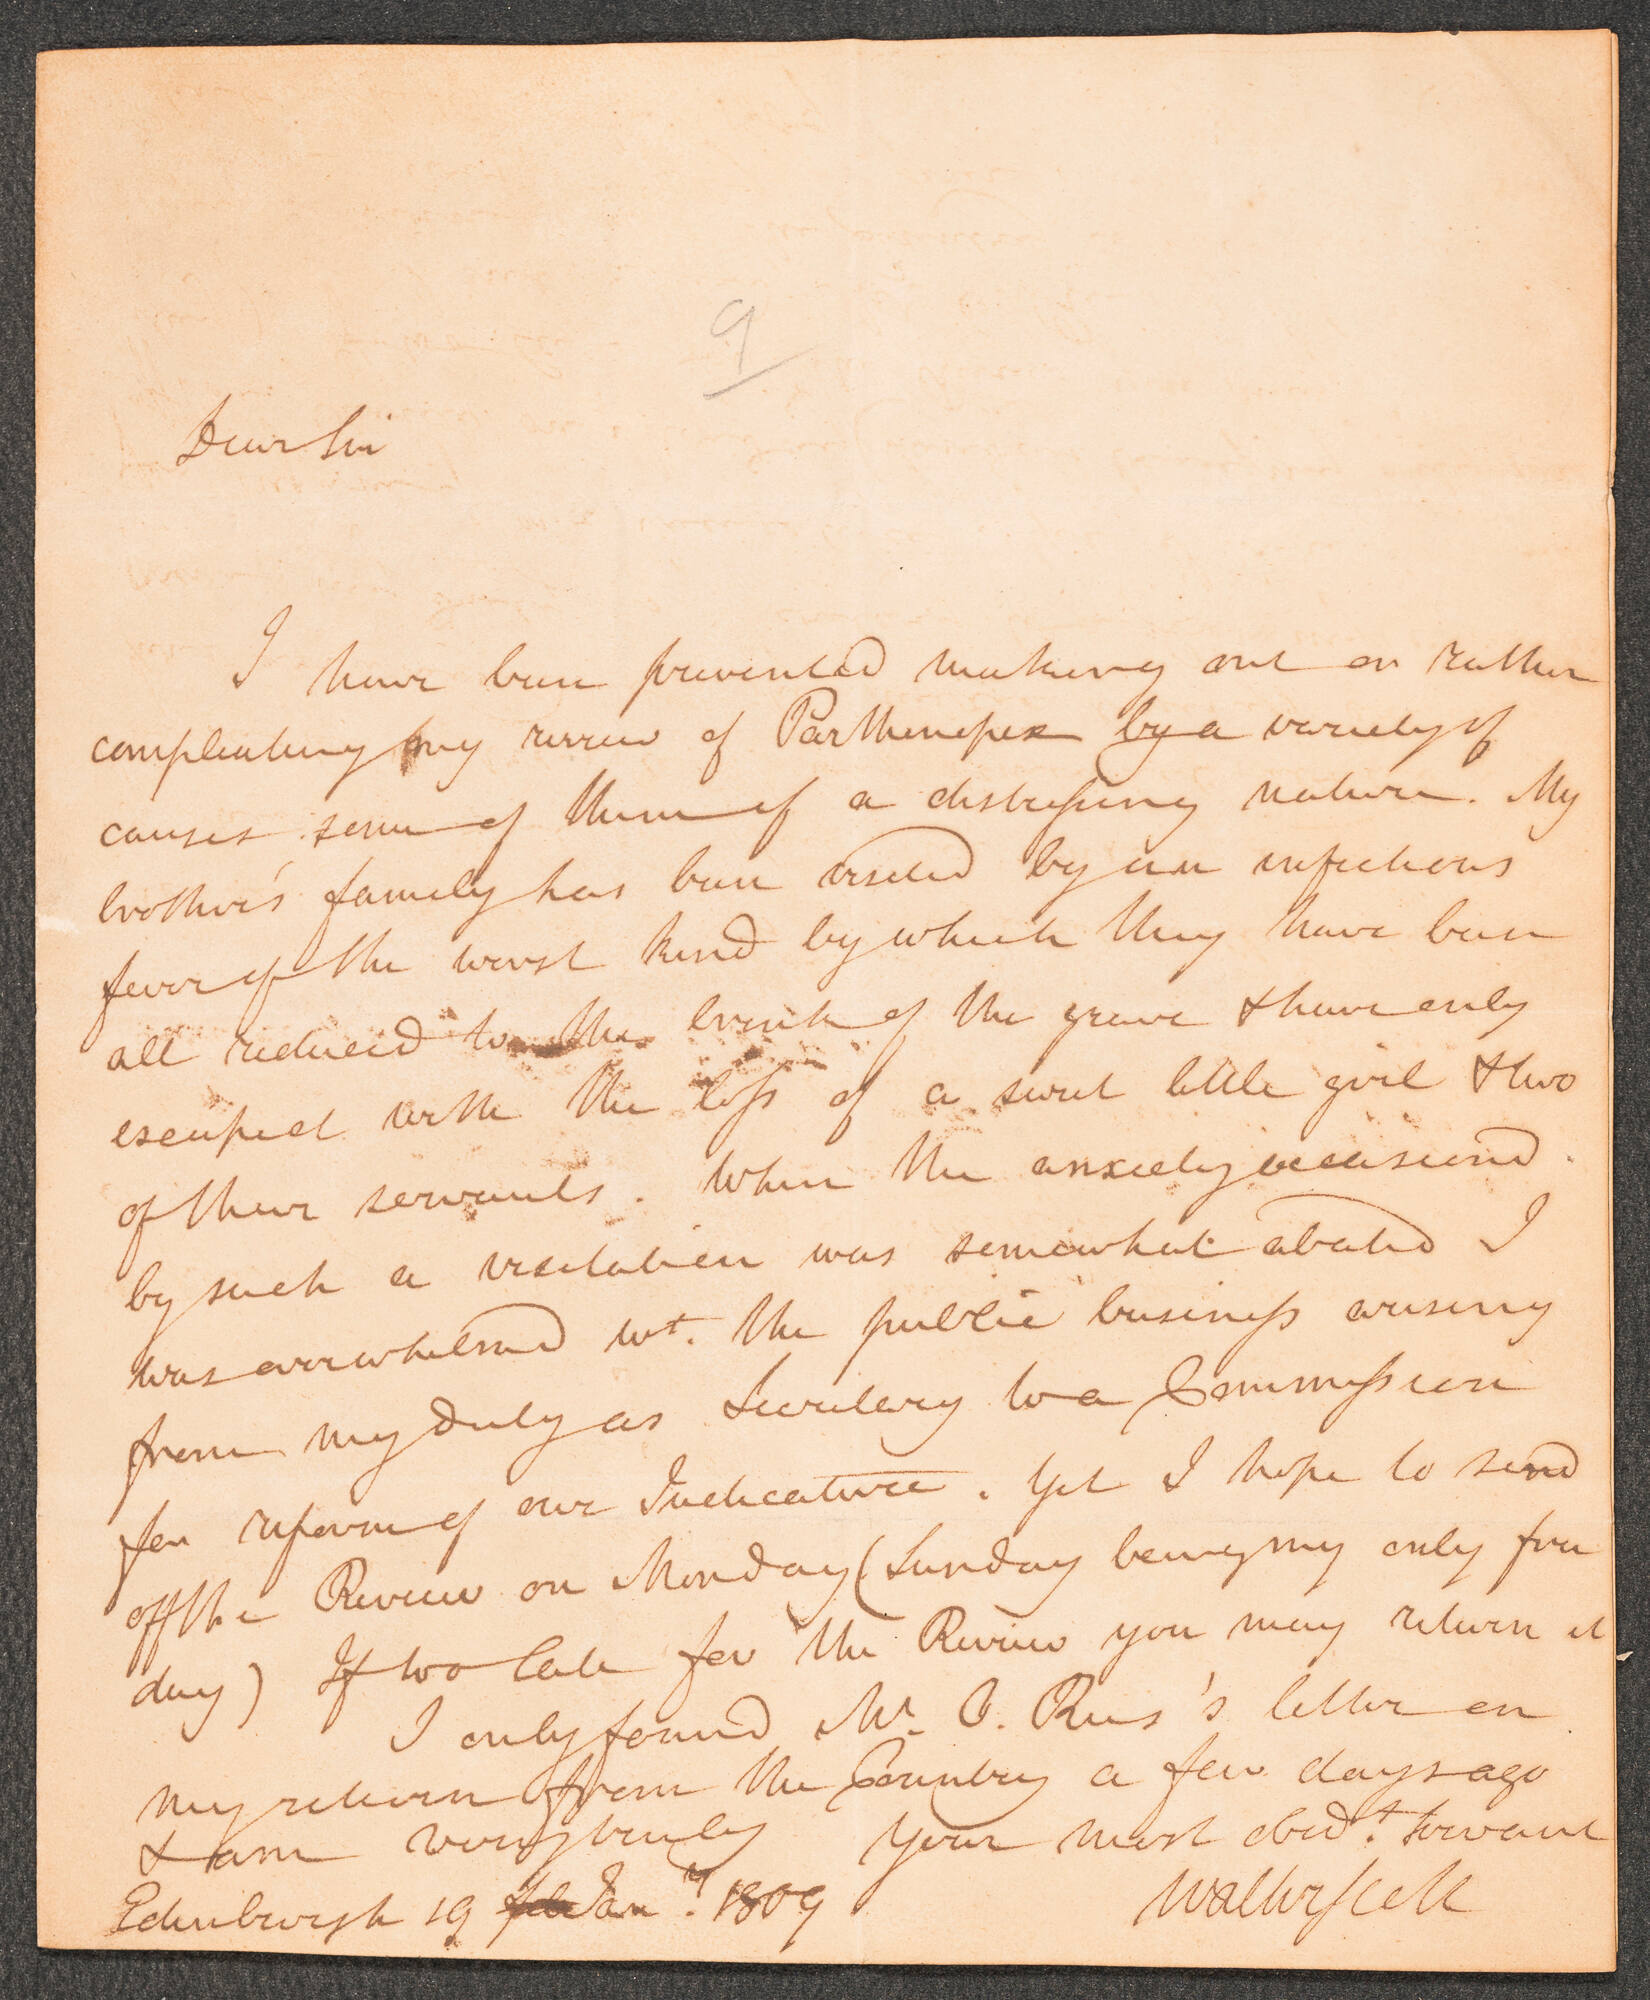 9
Dear Sir
I have been prevented making out or rather
compleating my review of Parthenopex by a variety of
causes some of them of a distressing nature. My
brother's family has been visited by an infectious
fever of the worst kind by which they have been
all reduced to the brink of the grave & have only
escaped with the loss of a sweet little girl & two
of their servants. When the anxiety occasiond
by such a visitation was somewhat abated I
was overwhelmd wt. the public business arising
from my duty as Secretary to a Commission
for reform of our Judicature. Yet I hope to send
off the Review on Monday (Sunday being my only free
day) If too late for the Review you may return it
I only found Mr. O. Rees's letter on
my return from the Country a few days ago
& am very truly Your most obedt. Servant
Edinburgh 19 Jany. 1809 Walter Scott